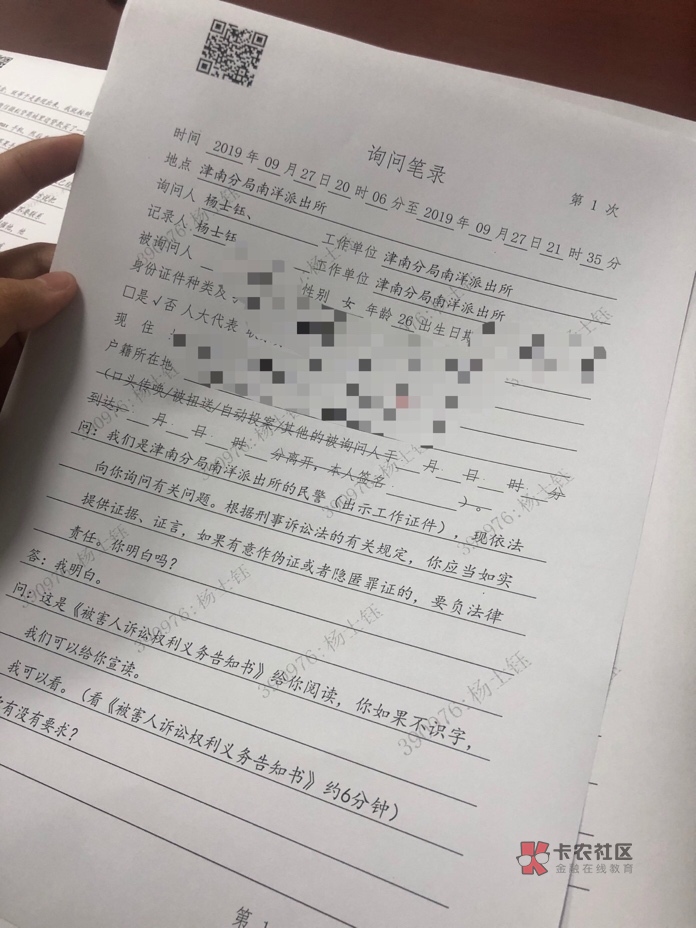 询问笔录
第 1 次
时间 2019 年 09 月 27 日 20 时 06 分至 2019 年 09 月 27 日 21 时 35 分
地点 津南分局南洋派出所
询问人 杨士钰、 工作单位 津南分局南洋派出所
记录人 杨士钰 工作单位 津南分局南洋派出所
被询问人 性别 女 年龄 26 出生日期
身份证件种类及
□是√否 人大代表
现 住
户籍所在地
(口头传唤/被扭送/自动投案/其他的被询问人于 月 日 时 分
到达, 月 日 时 分离开,本人签名 )。
问:我们是津南分局南洋派出所的民警(出示工作证件),现依法
向你询问有关问题。根据刑事诉讼法的有关规定,你应当如实
提供证据、证言,如果有意作伪证或者隐匿罪证的,要负法律
责任。你明白吗?
答:我明白。
问:这是《被害人诉讼权利义务告知书》给你阅读,你如果不识字,
我们可以给你宣读。
我可以看。(看《被害人诉讼权利义务告知书》约6分钟)
有没有要求?
第 1
390976:杨士钰
390976:杨士钰
390976:杨士钰
390976:杨士钰
390976:杨士钰
390976:杨士钰
卡农社区
金融在线教育